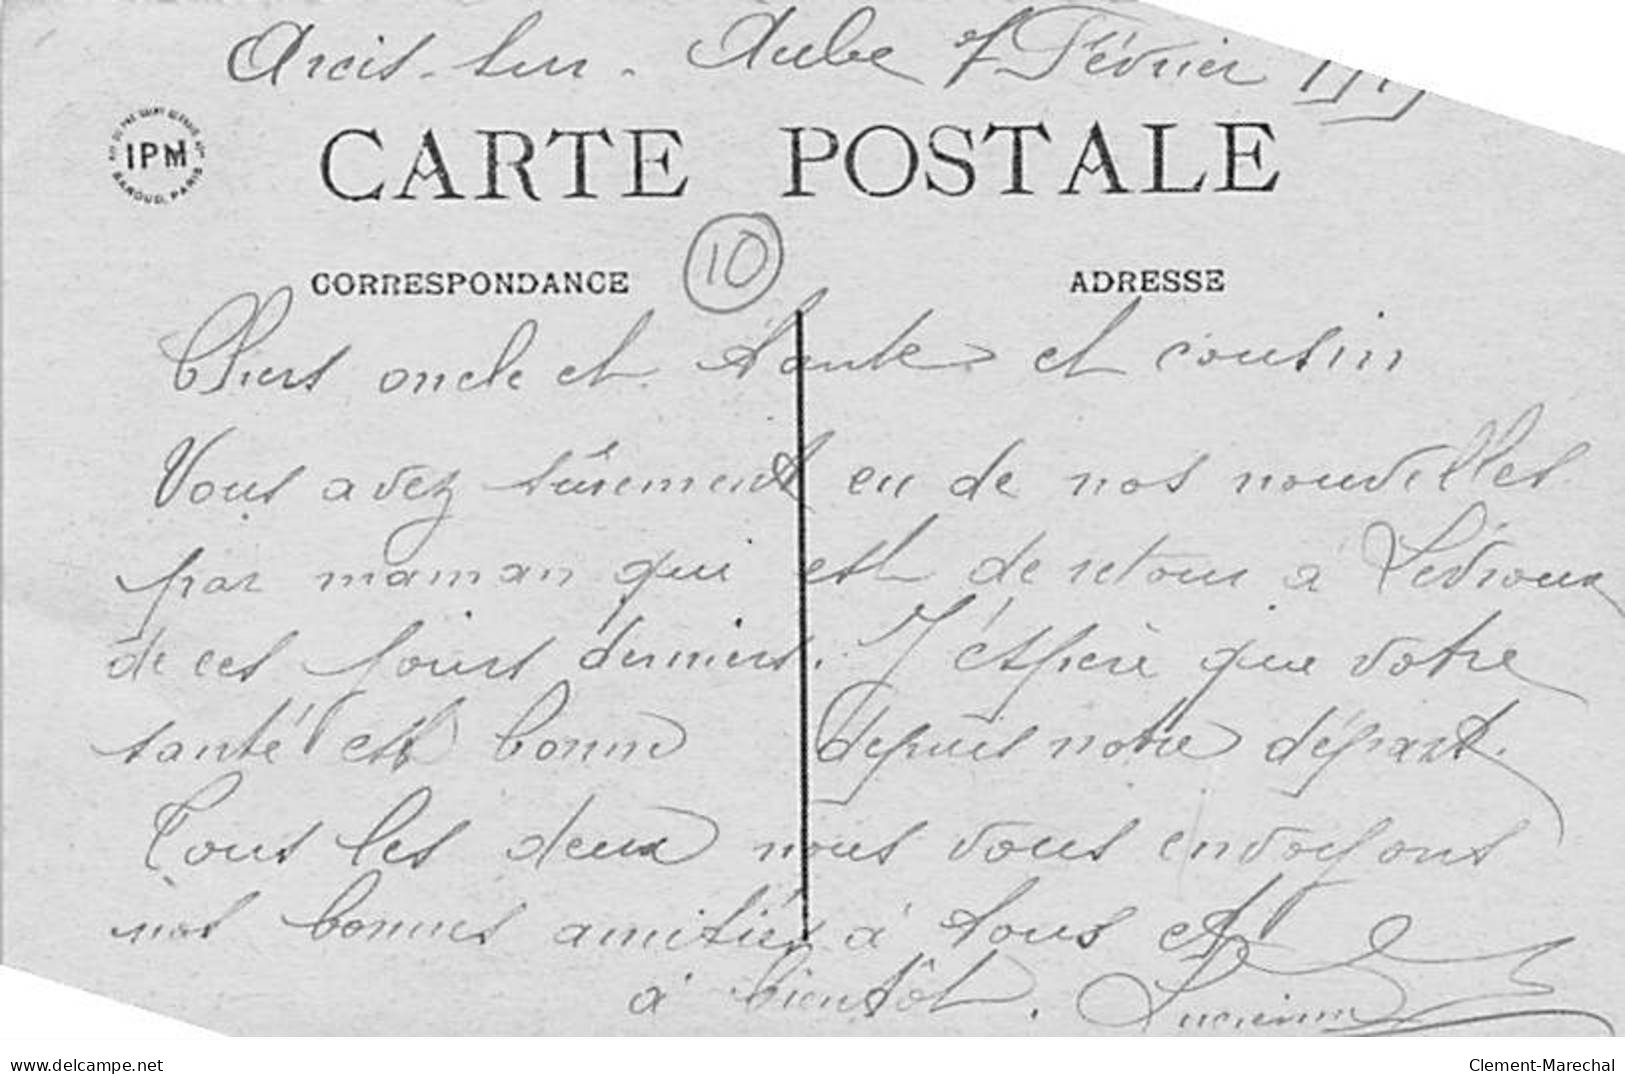 Arcis-sur-Aube 7 Février
IPM
BAROUD, PARIS
CARTE POSTALE
10
CORRESPONDANCE
ADRESSE
Chers oncle et tante et cousin
Vous avez sûrement eu de nos nouvelles
par maman qui est de retour à Levroux
de ces jours derniers. J'espère que votre
santé est bonne depuis notre départ.
Tous les deux nous vous envoyons
nos bonnes amitiés à tous et
à bientôt. Lucienne
www.delcampe.net
Clement-Marechal